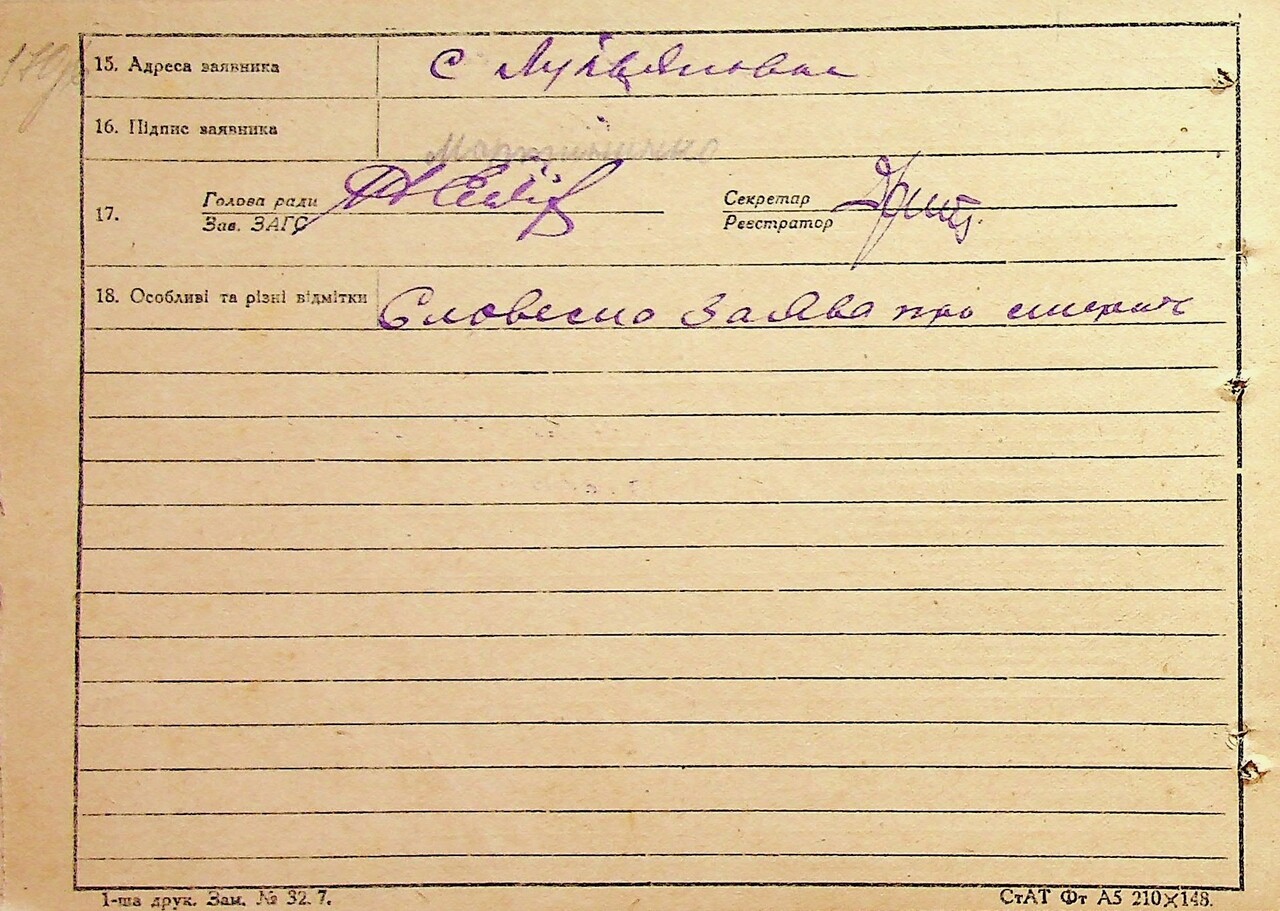 15. Адреса заявника с Лук'яновка
16. Підпис заявника
17. Голова ради Секретар
Зав. ЗАГС Реєстратор
18. Особливі та різні відмітки Словесно заява про смерть
1-ша друк. Зам. № 32. 7. СтАТ Фт А5 210×148.